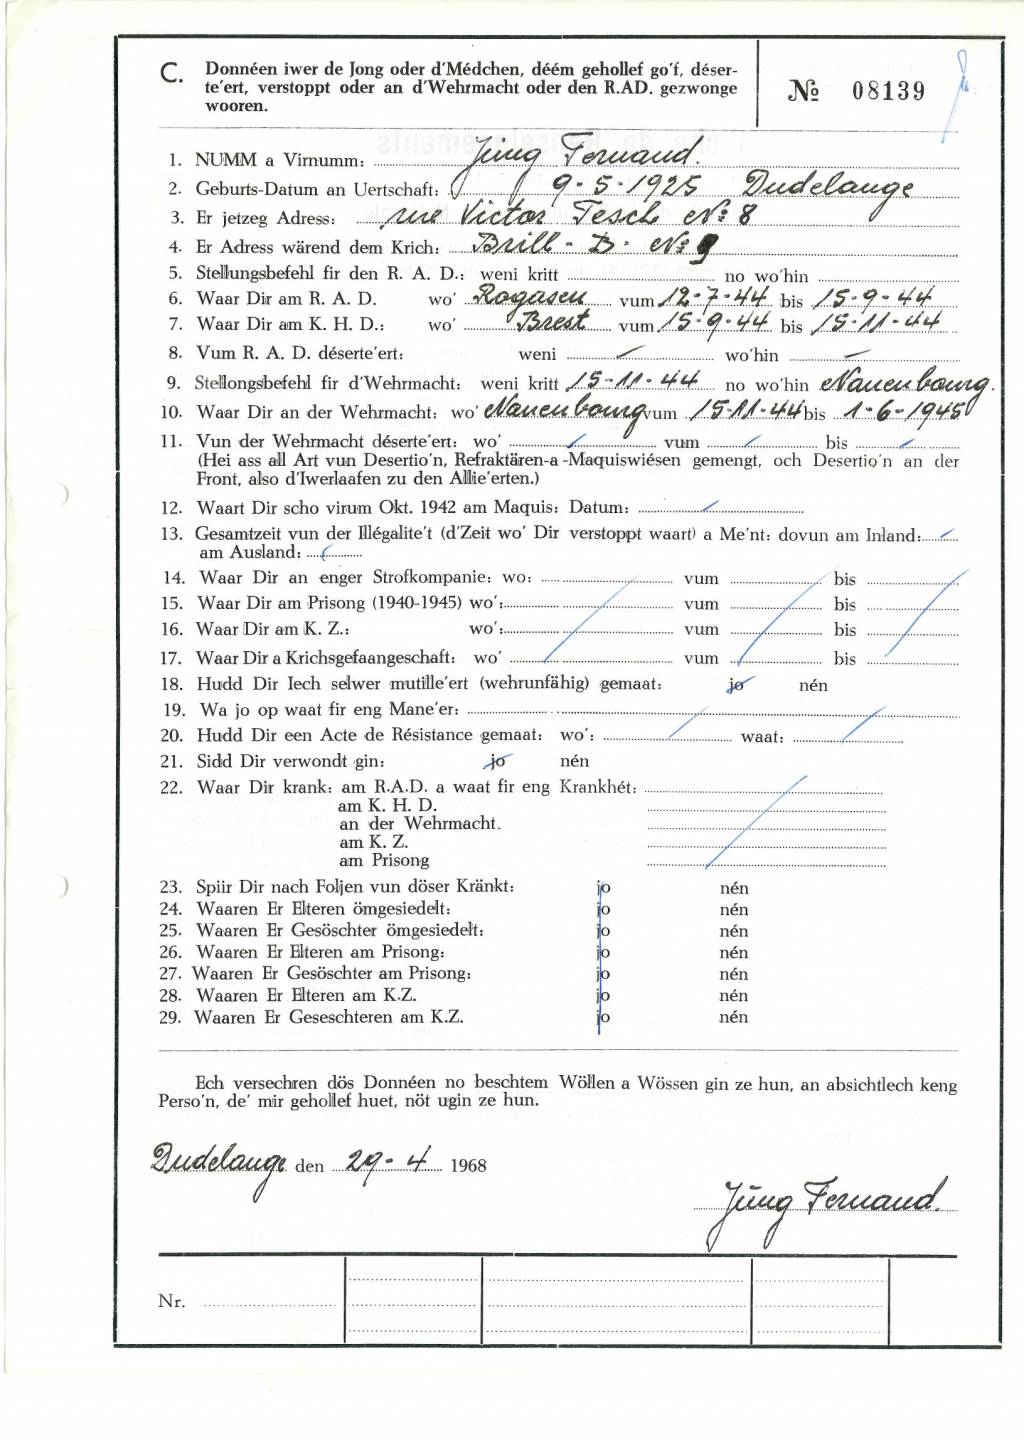 C. Donnéen iwer de Jong oder d'Médchen, déém gehollef go'f, déser-
te'ert, verstoppt oder an d'Wehrmacht oder den R.AD. gezwonge
wooren.
№ 08139
1. NUMM a Virnumm: Jüng Fernand.
2. Geburts-Datum an Uertschaft: 9-5-1925 Dudelange
3. Er jetzeg Adress: rue Victor Tesch No 8
4. Er Adress wärend dem Krich: Brill - B - No 9
5. Stellungsbefehl fir den R. A. D.: weni kritt no wo'hin
6. Waar Dir am R. A. D. wo' Rogasen vum 12-7-44 bis 15-9-44
7. Waar Dir am K. H. D.: wo' Brest vum 15-9-44 bis 15-11-44
8. Vum R. A. D. déserte'ert: weni — wo'hin —
9. Stellongsbefehl fir d'Wehrmacht: weni kritt 15-11-44 no wo'hin Nauenbourg.
10. Waar Dir an der Wehrmacht: wo' Nauenbourg vum 15-11-44 bis 1-6-1945
11. Vun der Wehrmacht déserte'ert: wo' vum bis
(Hei ass all Art vun Desertio'n, Refraktären-a -Maquiswiésen gemengt, och Desertio'n an der
Front, also d'Iwerlaafen zu den Allie'erten.)
12. Waart Dir scho virum Okt. 1942 am Maquis: Datum:
13. Gesamtzeit vun der Illégalite't (d'Zeit wo' Dir verstoppt waart) a Me'nt: dovun am Inland:
am Ausland:
14. Waar Dir an enger Strofkompanie: wo: vum bis
15. Waar Dir am Prisong (1940-1945) wo': vum bis
16. Waar Dir am K. Z.: wo': vum bis
17. Waar Dir a Krichsgefaangeschaft: wo' vum bis
18. Hudd Dir Iech selwer mutille'ert (wehrunfähig) gemaat: jo nén
19. Wa jo op waat fir eng Mane'er:
20. Hudd Dir een Acte de Résistance gemaat: wo': waat:
21. Sidd Dir verwondt gin: jo nén
22. Waar Dir krank: am R.A.D. a waat fir eng Krankhét:
am K. H. D.
an der Wehrmacht.
am K. Z.
am Prisong
23. Spiir Dir nach Foljen vun döser Kränkt: jo nén
24. Waaren Er Elteren ömgesiedelt: jo nén
25. Waaren Er Gesöschter ömgesiedelt: jo nén
26. Waaren Er Elteren am Prisong: jo nén
27. Waaren Er Gesöschter am Prisong: jo nén
28. Waaren Er Elteren am K.Z. jo nén
29. Waaren Er Geseschteren am K.Z. jo nén
Ech versechren dös Donnéen no beschtem Wöllen a Wössen gin ze hun, an absichtlech keng
Perso'n, de' mir gehollef huet, nöt ugin ze hun.
Dudelange den 29-4 1968
Jüng Fernand.
Nr.